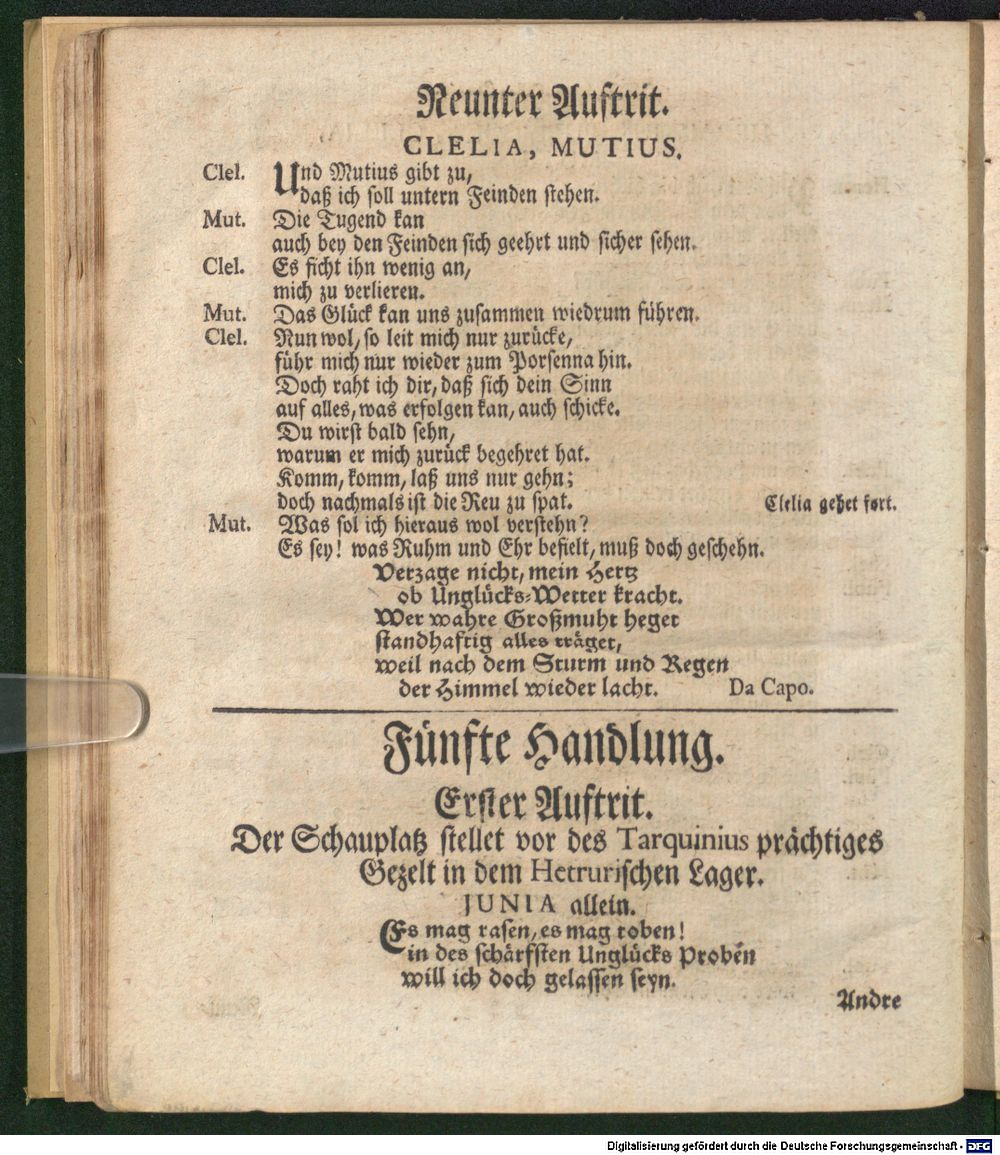 Neunter Auftrit.
CLELIA, MUTIUS.
Clel. Und Mutius gibt zu,
daß ich soll untern Feinden stehen.
Mut. Die Tugend kan
auch bey den Feinden sich geehrt und sicher sehen.
Clel. Es ficht ihn wenig an,
mich zu verlieren.
Mut. Das Glück kan uns zusammen wiedrum führen.
Clel. Nun wol, so leit mich nur zurücke,
führ mich nur wieder zum Porsenna hin.
Doch raht ich dir, daß sich dein Sinn
auf alles, was erfolgen kan, auch schicke.
Du wirst bald sehn,
warum er mich zurück begehret hat.
Komm, komm, laß uns nur gehn;
doch nachmals ist die Reu zu spat. Clelia gehet fort.
Mut. Was sol ich hieraus wol verstehn?
Es sey! was Ruhm und Ehr befielt, muß doch geschehn.
Verzage nicht, mein Hertz
ob Unglücks-Wetter kracht.
Wer wahre Großmuht heget
standhaftig alles träget,
weil nach dem Sturm und Regen
der Himmel wieder lacht. Da Capo.
Fünfte Handlung.
Erster Auftrit.
Der Schauplatz stellet vor des Tarquinius prächtiges
Gezelt in dem Hetrurischen Lager.
JUNIA allein.
Es mag rasen, es mag toben!
in des schärfsten Unglücks Proben
will ich doch gelassen seyn.
Andre
Digitalisierung gefördert durch die Deutsche Forschungsgemeinschaft - DFG